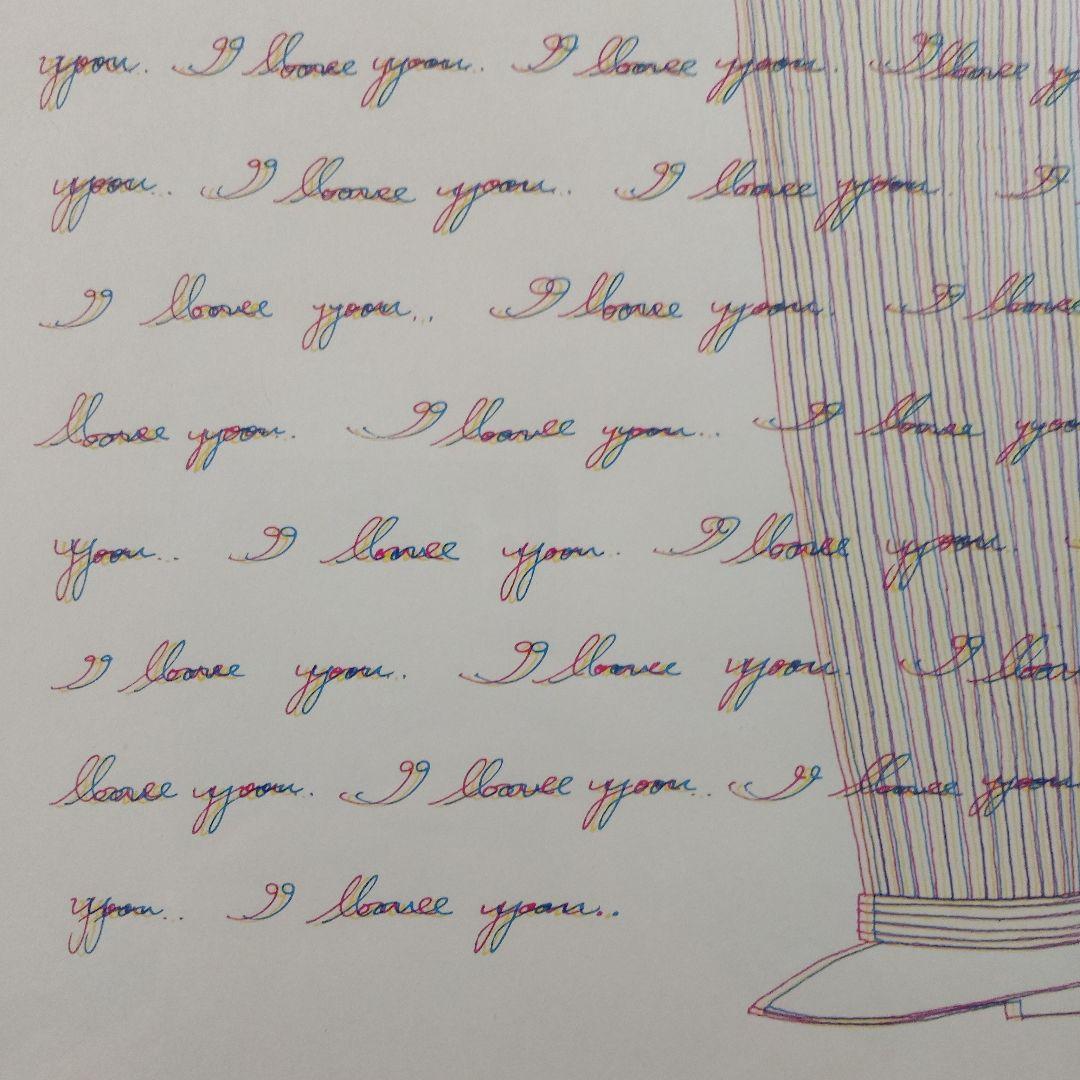 you. I love you. I love you. I love
you. I love you. I love you. I
I love you. I love you. I love
love you. I love you. I love you
you. I love you. I love you.
I love you. I love you. I love
love you. I love you. I love you
you. I love you.